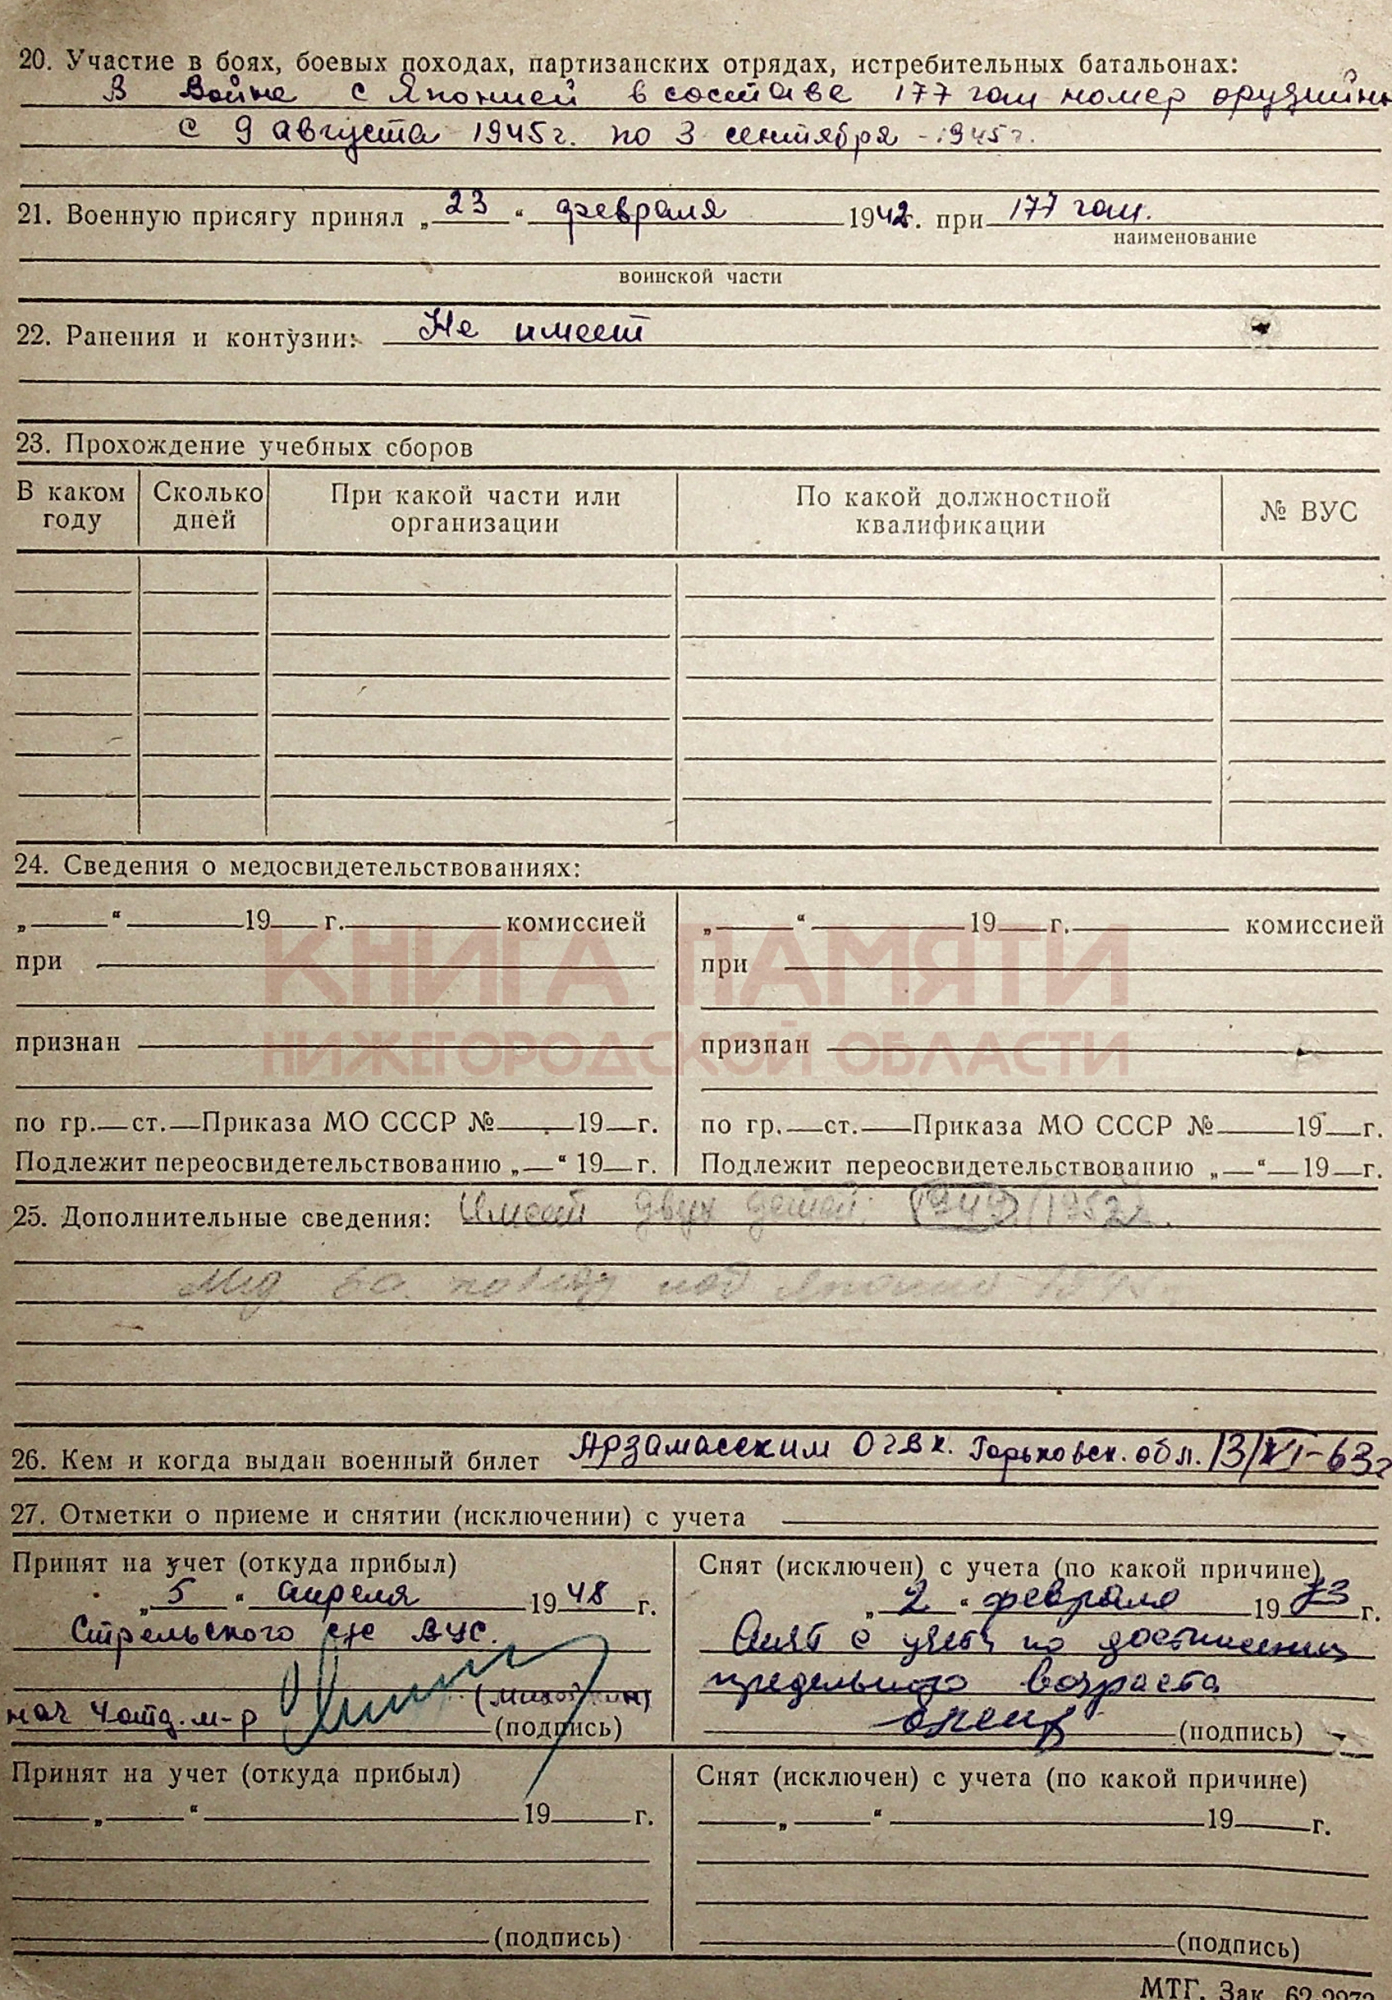 20. Участие в боях, боевых походах, партизанских отрядах, истребительных батальонах:
В Войне с Японией в составе 177 гап номер орудийн
с 9 августа 1945г. по 3 сентября - 1945г.
21. Военную присягу принял „ 23 “ февраля 1942г. при 177 гап.
наименование
воинской части
22. Ранения и контузии: Не имеет
23. Прохождение учебных сборов
В каком году Сколько дней При какой части или организации По какой должностной квалификации № ВУС
24. Сведения о медосвидетельствованиях:
„ “ 19 г. комиссией
при
признан
по гр. ст. Приказа МО СССР № 19 г.
Подлежит переосвидетельствованию „ “ 19 г.
„ “ 19 г. комиссией
при
признан
по гр. ст. Приказа МО СССР № 19 г.
Подлежит переосвидетельствованию „ “ 19 г.
КНИГА ПАМЯТИ
НИЖЕГОРОДСКОЙ ОБЛАСТИ
25. Дополнительные сведения: Имеет двух детей: 1949 1952г.
Мед. за победу над Японией 1945
26. Кем и когда выдан военный билет Арзамасским ОГВК. Горьковск. обл. 13/XI-63г
27. Отметки о приеме и снятии (исключении) с учета
Принят на учет (откуда прибыл)
„ 5 “ апреля 1948 г.
Стрельского с/с ВУС.
нач 4 отд. м-р
(подпись)
Снят (исключен) с учета (по какой причине)
„ 2 “ февраля 1973 г.
Снят с учета по достижении
предельного возраста
(подпись)
Принят на учет (откуда прибыл)
„ “ 19 г.
(подпись)
Снят (исключен) с учета (по какой причине)
„ “ 19 г.
(подпись)
МТГ. Зак. 62-2973